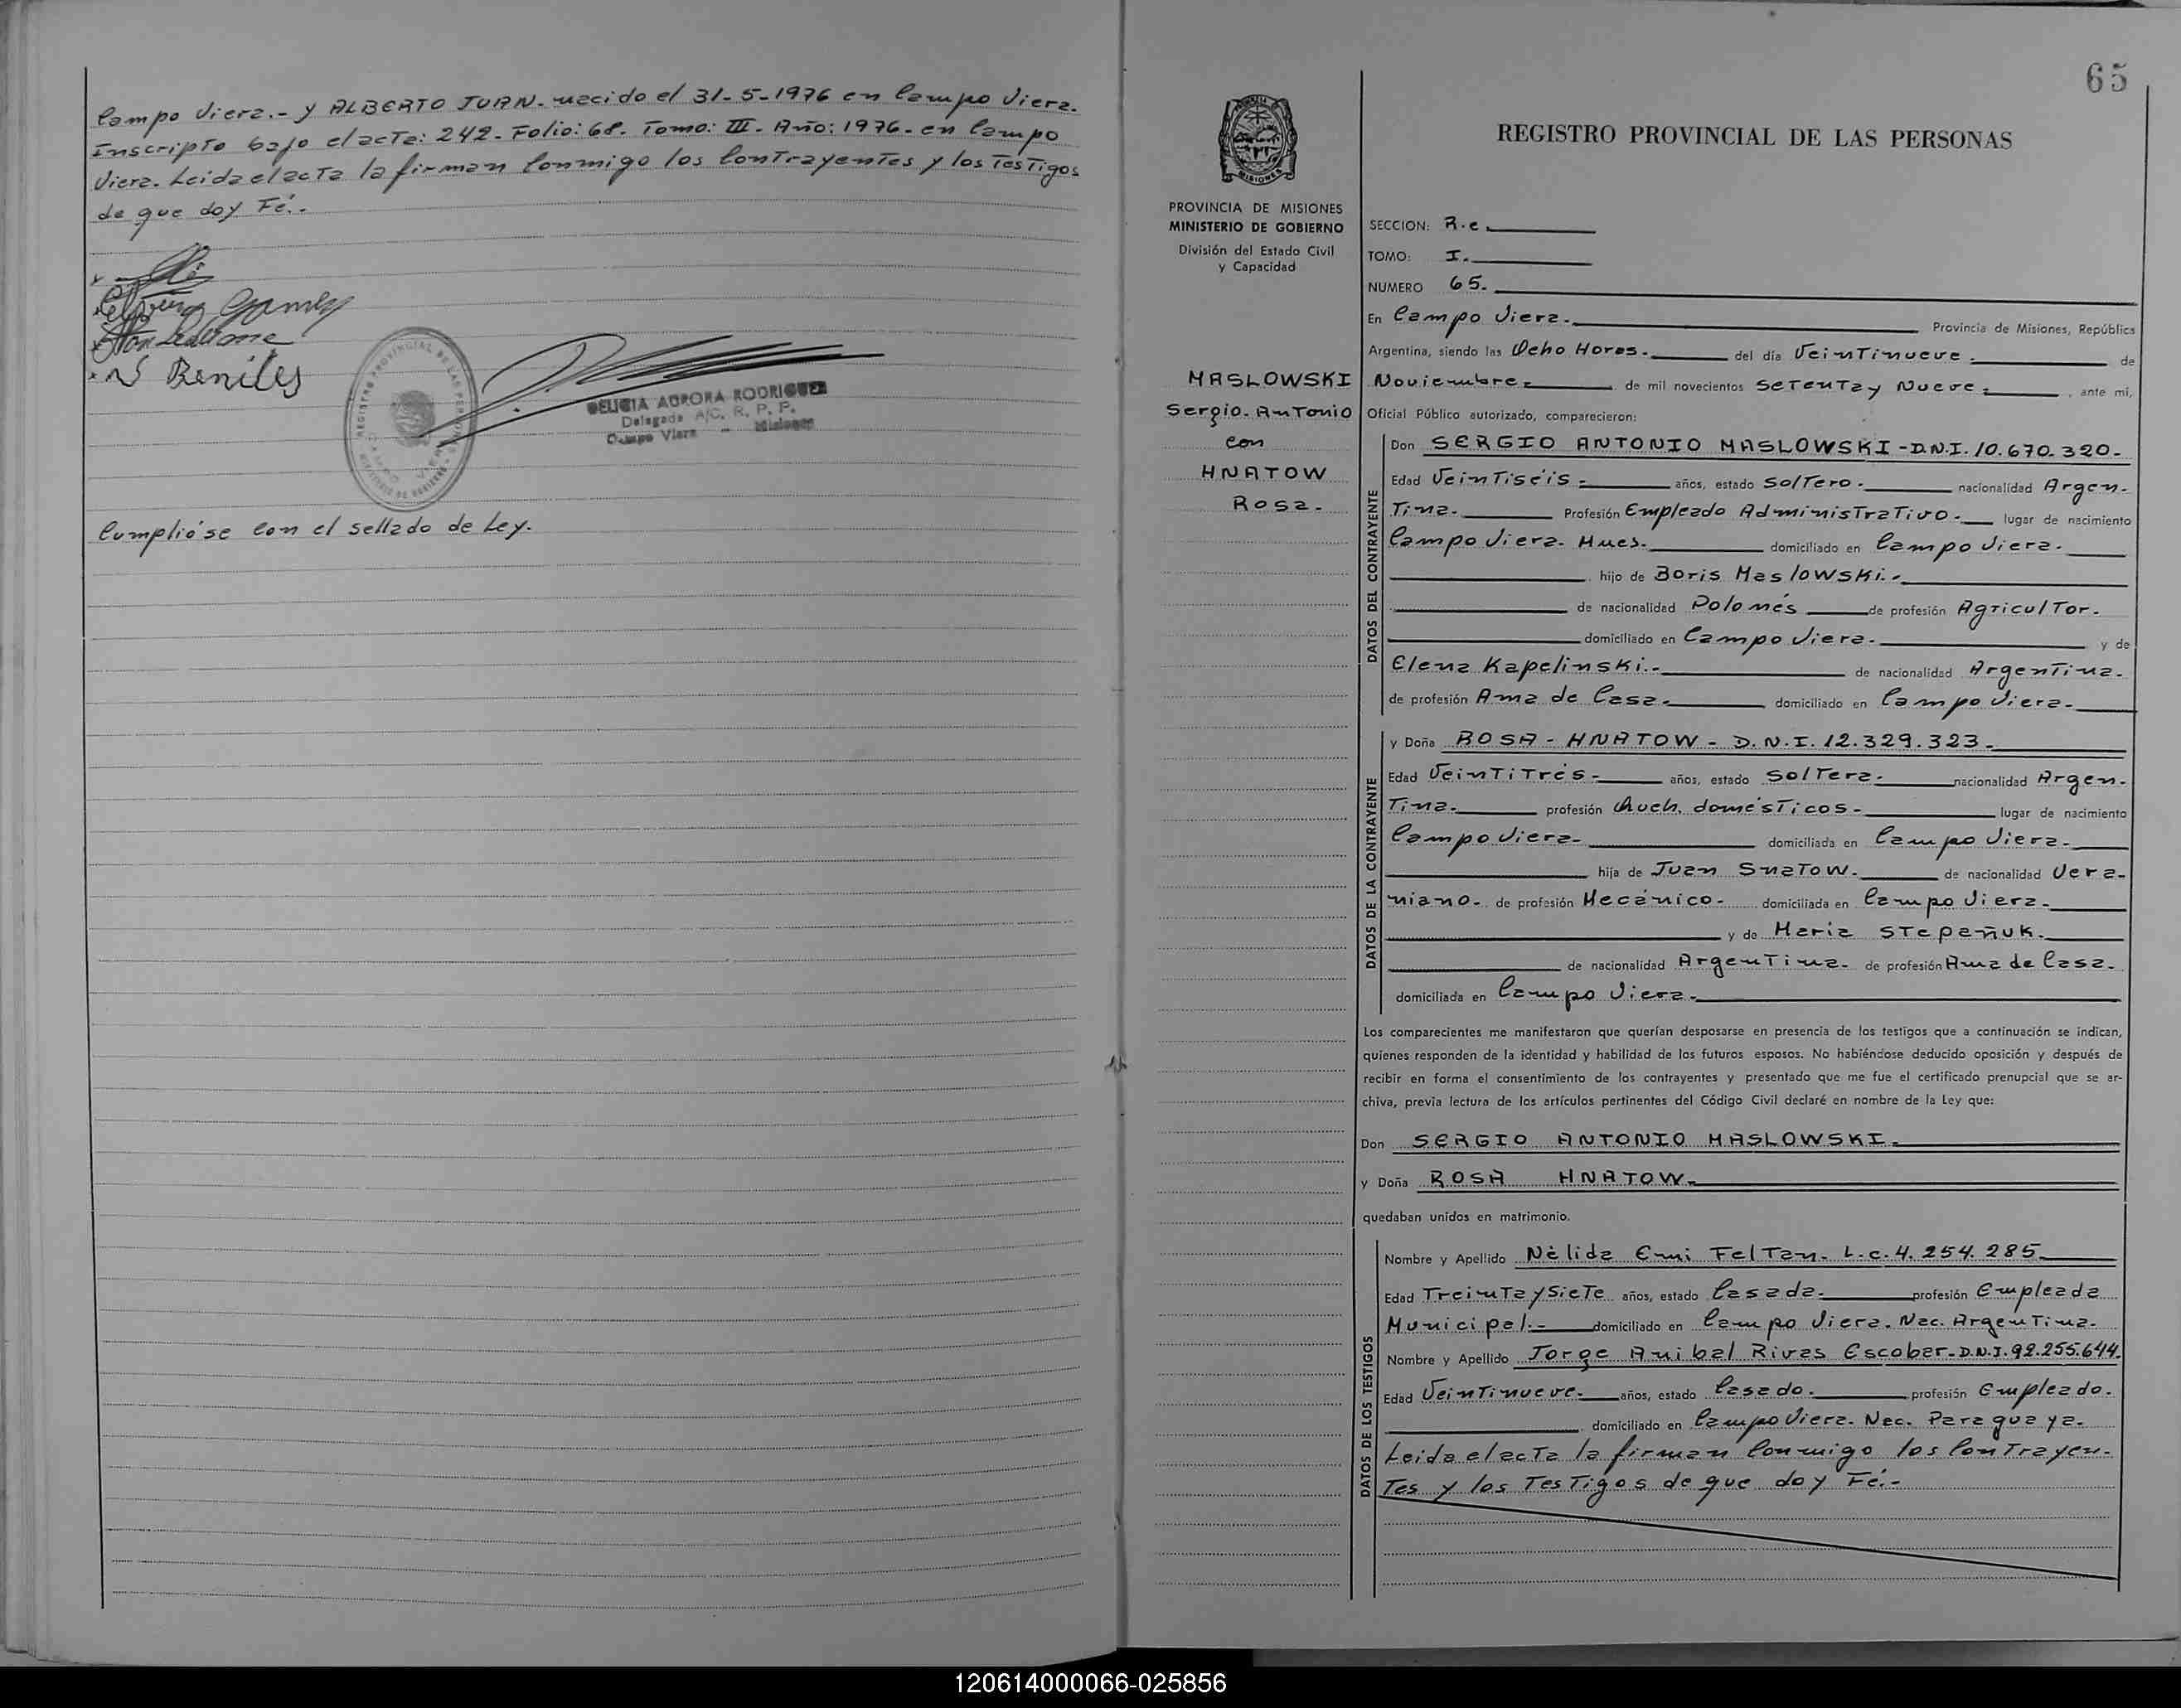 Campo Viera.- y ALBERTO JUAN. nacido el 31-5-1976 en Campo Viera.
Inscripto bajo el acta: 242- Folio: 68. Tomo: III- Año: 1976- en Campo
Viera. Leida el acta la firman Conmigo los Contrayentes y los Testigos
de que doy Fé.-
Gomez
N Benites
DELICIA AURORA RODRIGUEZ
Delegada A/C. R. P. P.
Campo Viera - Misiones
Cumplióse Con el sellado de Ley.
65
REGISTRO PROVINCIAL DE LAS PERSONAS
MISIONES
PROVINCIA DE MISIONES
MINISTERIO DE GOBIERNO
División del Estado Civil
y Capacidad
MASLOWSKI
Sergio-Antonio
con
HNATOW
Rosa-
SECCION: R.c.
TOMO: I.
NUMERO 65.
En Campo Viera. Provincia de Misiones, República
Argentina, siendo las Ocho Horas. del día Veintinueve. de
Noviembre- de mil novecientos Setenta y Nueve: , ante mí,
Oficial Público autorizado, comparecieron:
DATOS DEL CONTRAYENTE
Don SERGIO ANTONIO MASLOWSKI-D.N.I. 10.670.320-
Edad Veintiséis- años, estado Soltero. nacionalidad Argen-
Tina. Profesión Empleado Administrativo- lugar de nacimiento
Campo Viera. Mnes. domiciliado en Campo Viera.
hijo de Boris Maslowski.-
de nacionalidad Polonés de profesión Agricultor.
domiciliado en Campo Viera. y de
Elena Kapelinski.- de nacionalidad Argentina.
de profesión Ama de Casa- domiciliado en Campo Viera-
DATOS DE LA CONTRAYENTE
y Doña ROSA - HNATOW - D.N.I. 12.329.323-
Edad Veintitrés- años, estado Soltera: nacionalidad Argen-
Tina. profesión Queh. domésticos- lugar de nacimiento
Campo Viera- domiciliada en Campo Viera-
hija de Juan SnaTow. de nacionalidad Ucra-
niano- de profesión Mecánico- domiciliada en Campo Viera-
y de Maria Stepañuk.
de nacionalidad Argentina- de profesión Ama de Casa-
domiciliada en Campo Viera.
Los comparecientes me manifestaron que querían desposarse en presencia de los testigos que a continuación se indican,
quienes responden de la identidad y habilidad de los futuros esposos. No habiéndose deducido oposición y después de
recibir en forma el consentimiento de los contrayentes y presentado que me fue el certificado prenupcial que se ar-
chiva, previa lectura de los artículos pertinentes del Código Civil declaré en nombre de la Ley que:
Don SERGIO ANTONIO MASLOWSKI.
y Doña ROSA HNATOW.
quedaban unidos en matrimonio.
DATOS DE LOS TESTIGOS
Nombre y Apellido Nélida Emi Feltan- L.c. 4.254.285
Edad Treinta y Siete años, estado Casada. profesión Empleada
Municipal.- domiciliado en Campo Viera. Nac. Argentina-
Nombre y Apellido Jorge Anibal Rivas Escobar-D.N.I. 92.255.644.
Edad Veintinueve- años, estado Casado. profesión Empleado.
domiciliado en Campo Viera- Nac. Paraguaya-
Leida el acta la firman Conmigo los Contrayen-
Tes y los Testigos de que doy Fé.-
120614000066-025856